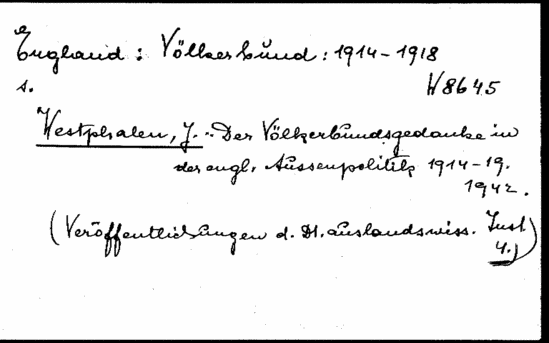 England : Völkerbund : 1914-1918
s.
W8645
Westphalen, J. .. Der Völkerbundsgedanke in
der engl. Aussenpolitik 1914-19.
1942.
(Veröffentlichungen d. Dt. auslandswiss. Inst.
4.)